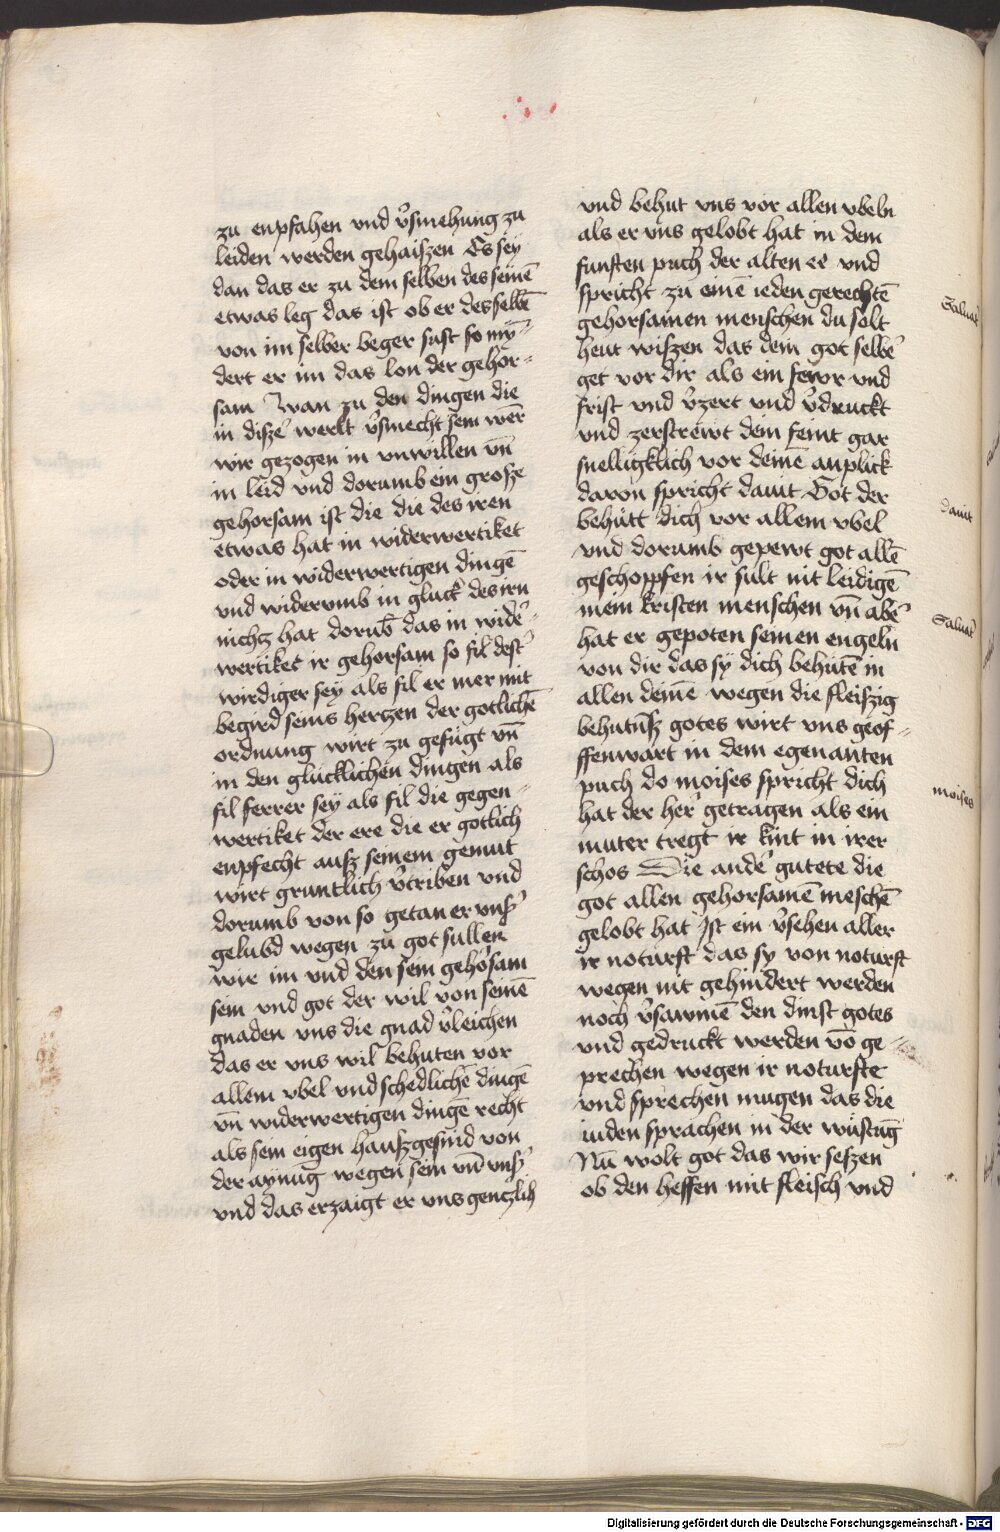 zu enpfahen vnd v̉smehung zu
leiden werden gehaiszen Es sey
dan das er zu dem selben des seinē
etwas leg das ist ob er des selbē
von im selber beger sust so my̅=
dert er im das lon der gehor=
sam Wan zu den dingen die
in disze͛ werlt v̉smecht sein wer̅
wir gezogen in vnwillen vn̅
in leid vnd dorumb ein grosze
gehorsam ist die die des iren
etwas hat in widerwertiket
oder in widerwertigen dingē
vnd widerumb in gluck des irn
nichtz hat dorub̅ das in wide͛=
wertiket ir gehorsam so fil dest͛
wirdiger sey als fil er mer mit
begird seins hertzen der gotlichē
ordnung wirt zu gefugt vn̅
in den glucklichen dingen als
fil ferrer sey als fil die gegen=
wertiket der ere die er gotlich
enpfecht ausz seinem gemut
wirt gruntlich v̉triben vnd
dorumb von so getaner vns͛
gelubd wegen zu got sullen
wir im vnd den sein geho͛sam
sein vnd got der wil von seinē
gnaden vns die gnad v̉leichen
das er vns wil behuten vor
allem vbel vnd schedlichē dingē
vn̅ widerwertigen dingē recht
als sein eigen hauszgesind von
der aynug̅ wegen sein vn̅ vns͛
vnd das erzaigt er vns gentzlich
vnd behut vns vor allen vbeln
als er vns gelobt hat in dem
funften puch der alten ee vnd
spricht zu einē ieden gerechtē
gehorsamen menschen du solt
heut wiszen das dein got selbe͛
get vor dir als ein fewr vnd
frist vnd v̉zert vnd v̉druckt
vnd zerstrewt dein feint gar
snelligklich vor deinē anplick
dauon spricht dauit Got der
behutt dich vor allem vbel
vnd dorumb gepewt got allē
geschopfen ir sult nit leidigē
mein kristen menschen vn̅ abe͛
hat er gepoten seinen engeln
von dir das sy dich behutē in
allen deinē wegen die fleiszig
behutnusz gotes wirt vns geof=
ffenwart in dem egenanten
puch do moises spricht dich
hat der her getragen als ein
muter tregt ir kint in irer
schos Die ande͛ gutete die
got allen gehorsamē meschē
gelobt hat Ist ein v̉sehen aller
ir noturft das sy von noturft
wegen nit gehindert werden
noch v̉sawmē den dinst gotes
vnd gedruckt werden vō ge=
prechen wegen ir noturfte
vnd sprechen mugen das die
iuden sprachen in der wustug̅
Nu̅ wolt got das wir seszen
ob den heffen mit fleisch vnd
dauit
moises
Digitalisierung gefördert durch die Deutsche Forschungsgemeinschaft - DFG